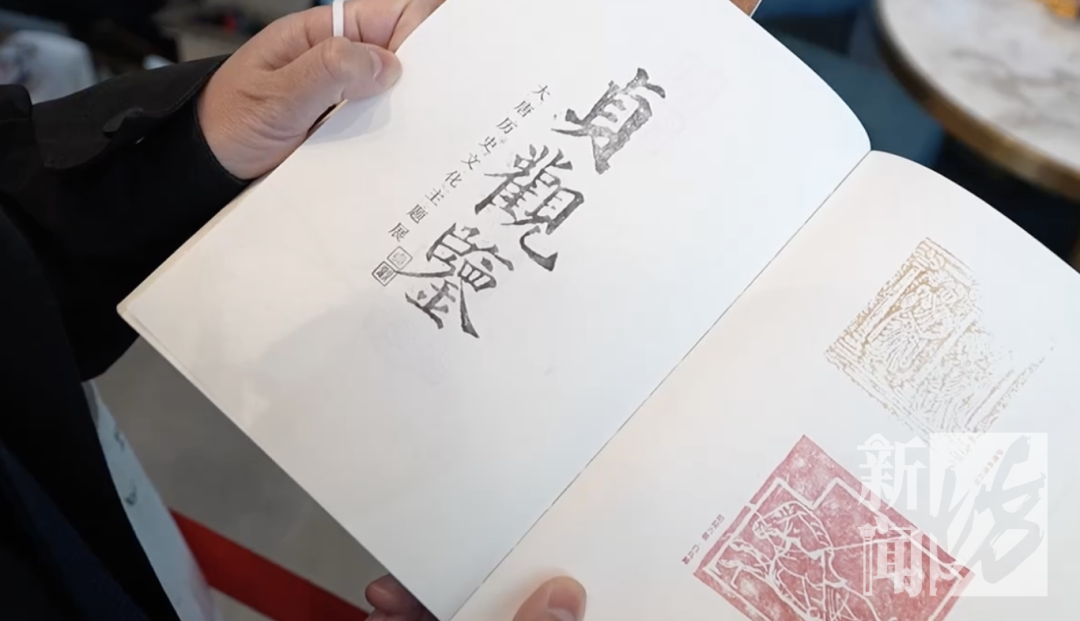 貞觀鑒
大唐历史文化主题展
新闻坊